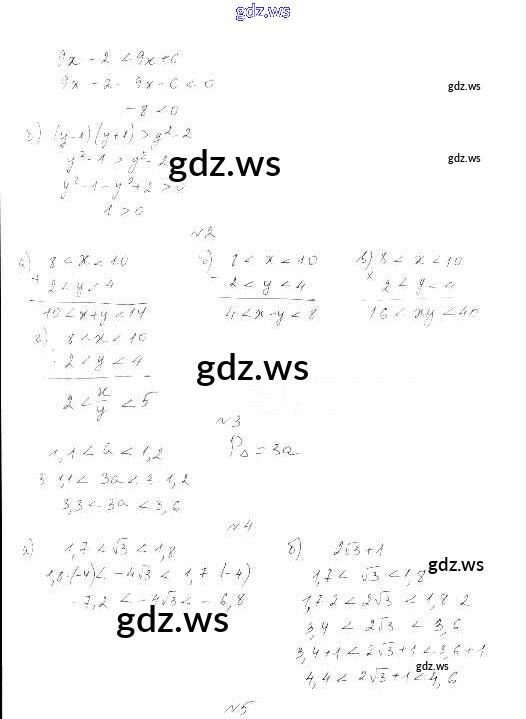 gdz.ws
9x - 2 < 9x + 6
9x - 2 - 9x - 6 < 0 gdz.ws
- 8 < 0
г) (y-1)(y+1) > y²-2
y²-1 > y²-2 gdz.ws gdz.ws
y²-1-y²+2 > 0
1 > 0
№2
а) 8 < x < 10
+ 2 < y < 4
10 < x+y < 14
б) 8 < x < 10
- 2 < y < 4
4 < x-y < 8
в) 8 < x < 10
× 2 < y < 4
16 < xy < 40
г) 8 < x < 10
: 2 < y < 4
gdz.ws
2 < x/y < 5
№3
1,1 < a < 1,2 P△ = 3a
3·1,1 < 3a < 3·1,2
3,3 < 3a < 3,6
№4
а) 1,7 < √3 < 1,8
1,8·(-4) < -4√3 < 1,7·(-4)
-7,2 < -4√3 < -6,8
gdz.ws
б) 2√3+1
1,7 < √3 < 1,8 gdz.ws
1,7·2 < 2√3 < 1,8·2
3,4 < 2√3 < 3,6
3,4+1 < 2√3+1 < 3,6+1
gdz.ws
4,4 < 2√3+1 < 4,6
№5